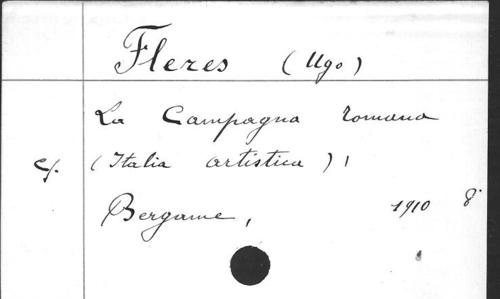 Fleres (Ugo)
La Campagna romana
c/. (Italia artistica),
Bergame, 1910 8°